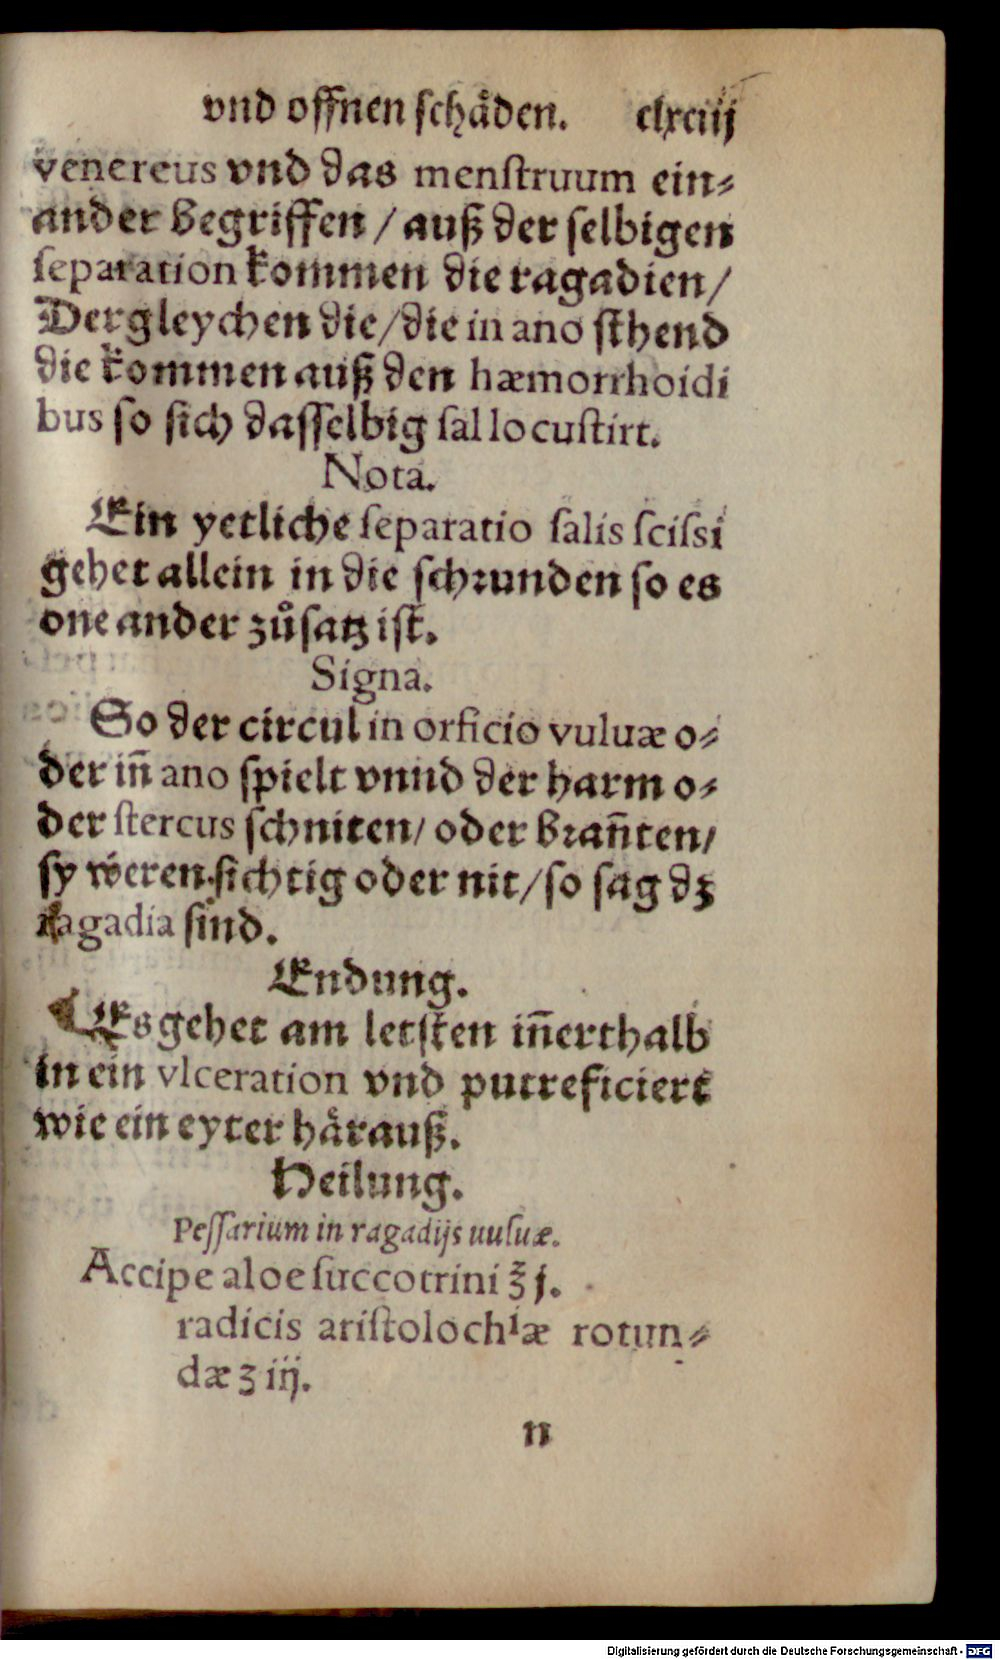 vnd offnen schåden. clxciij
venereus vnd das menstruum ein⸗
ander begriffen / auß der selbigen
separation kommen die ragadien /
Dergleychen die / die in ano sthend
die kommen auß den hæmorrhoidi
bus so sich dasselbig sal locustirt.
Nota.
Ein yetliche separatio salis scissi
gehet allein in die schrunden so es
one ander zůsatz ist.
Signa.
So der circul in orficio vuluæ o⸗
der in̄ ano spielt vnnd der harm o⸗
der stercus schniten / oder bran̄ten /
sy weren sichtig oder nit / so sag dz
ragadia sind.
Endung.
Es gehet am letsten in̄erthalb
in ein vlceration vnd putreficiert
wie ein eyter hårauß.
Heilung.
Pessarium in ragadijs uuluæ.
Accipe aloe succotrini ℥ j.
radicis aristolochiæ rotun⸗
dæ ʒ iij.
n
Digitalisierung gefördert durch die Deutsche Forschungsgemeinschaft - DFG